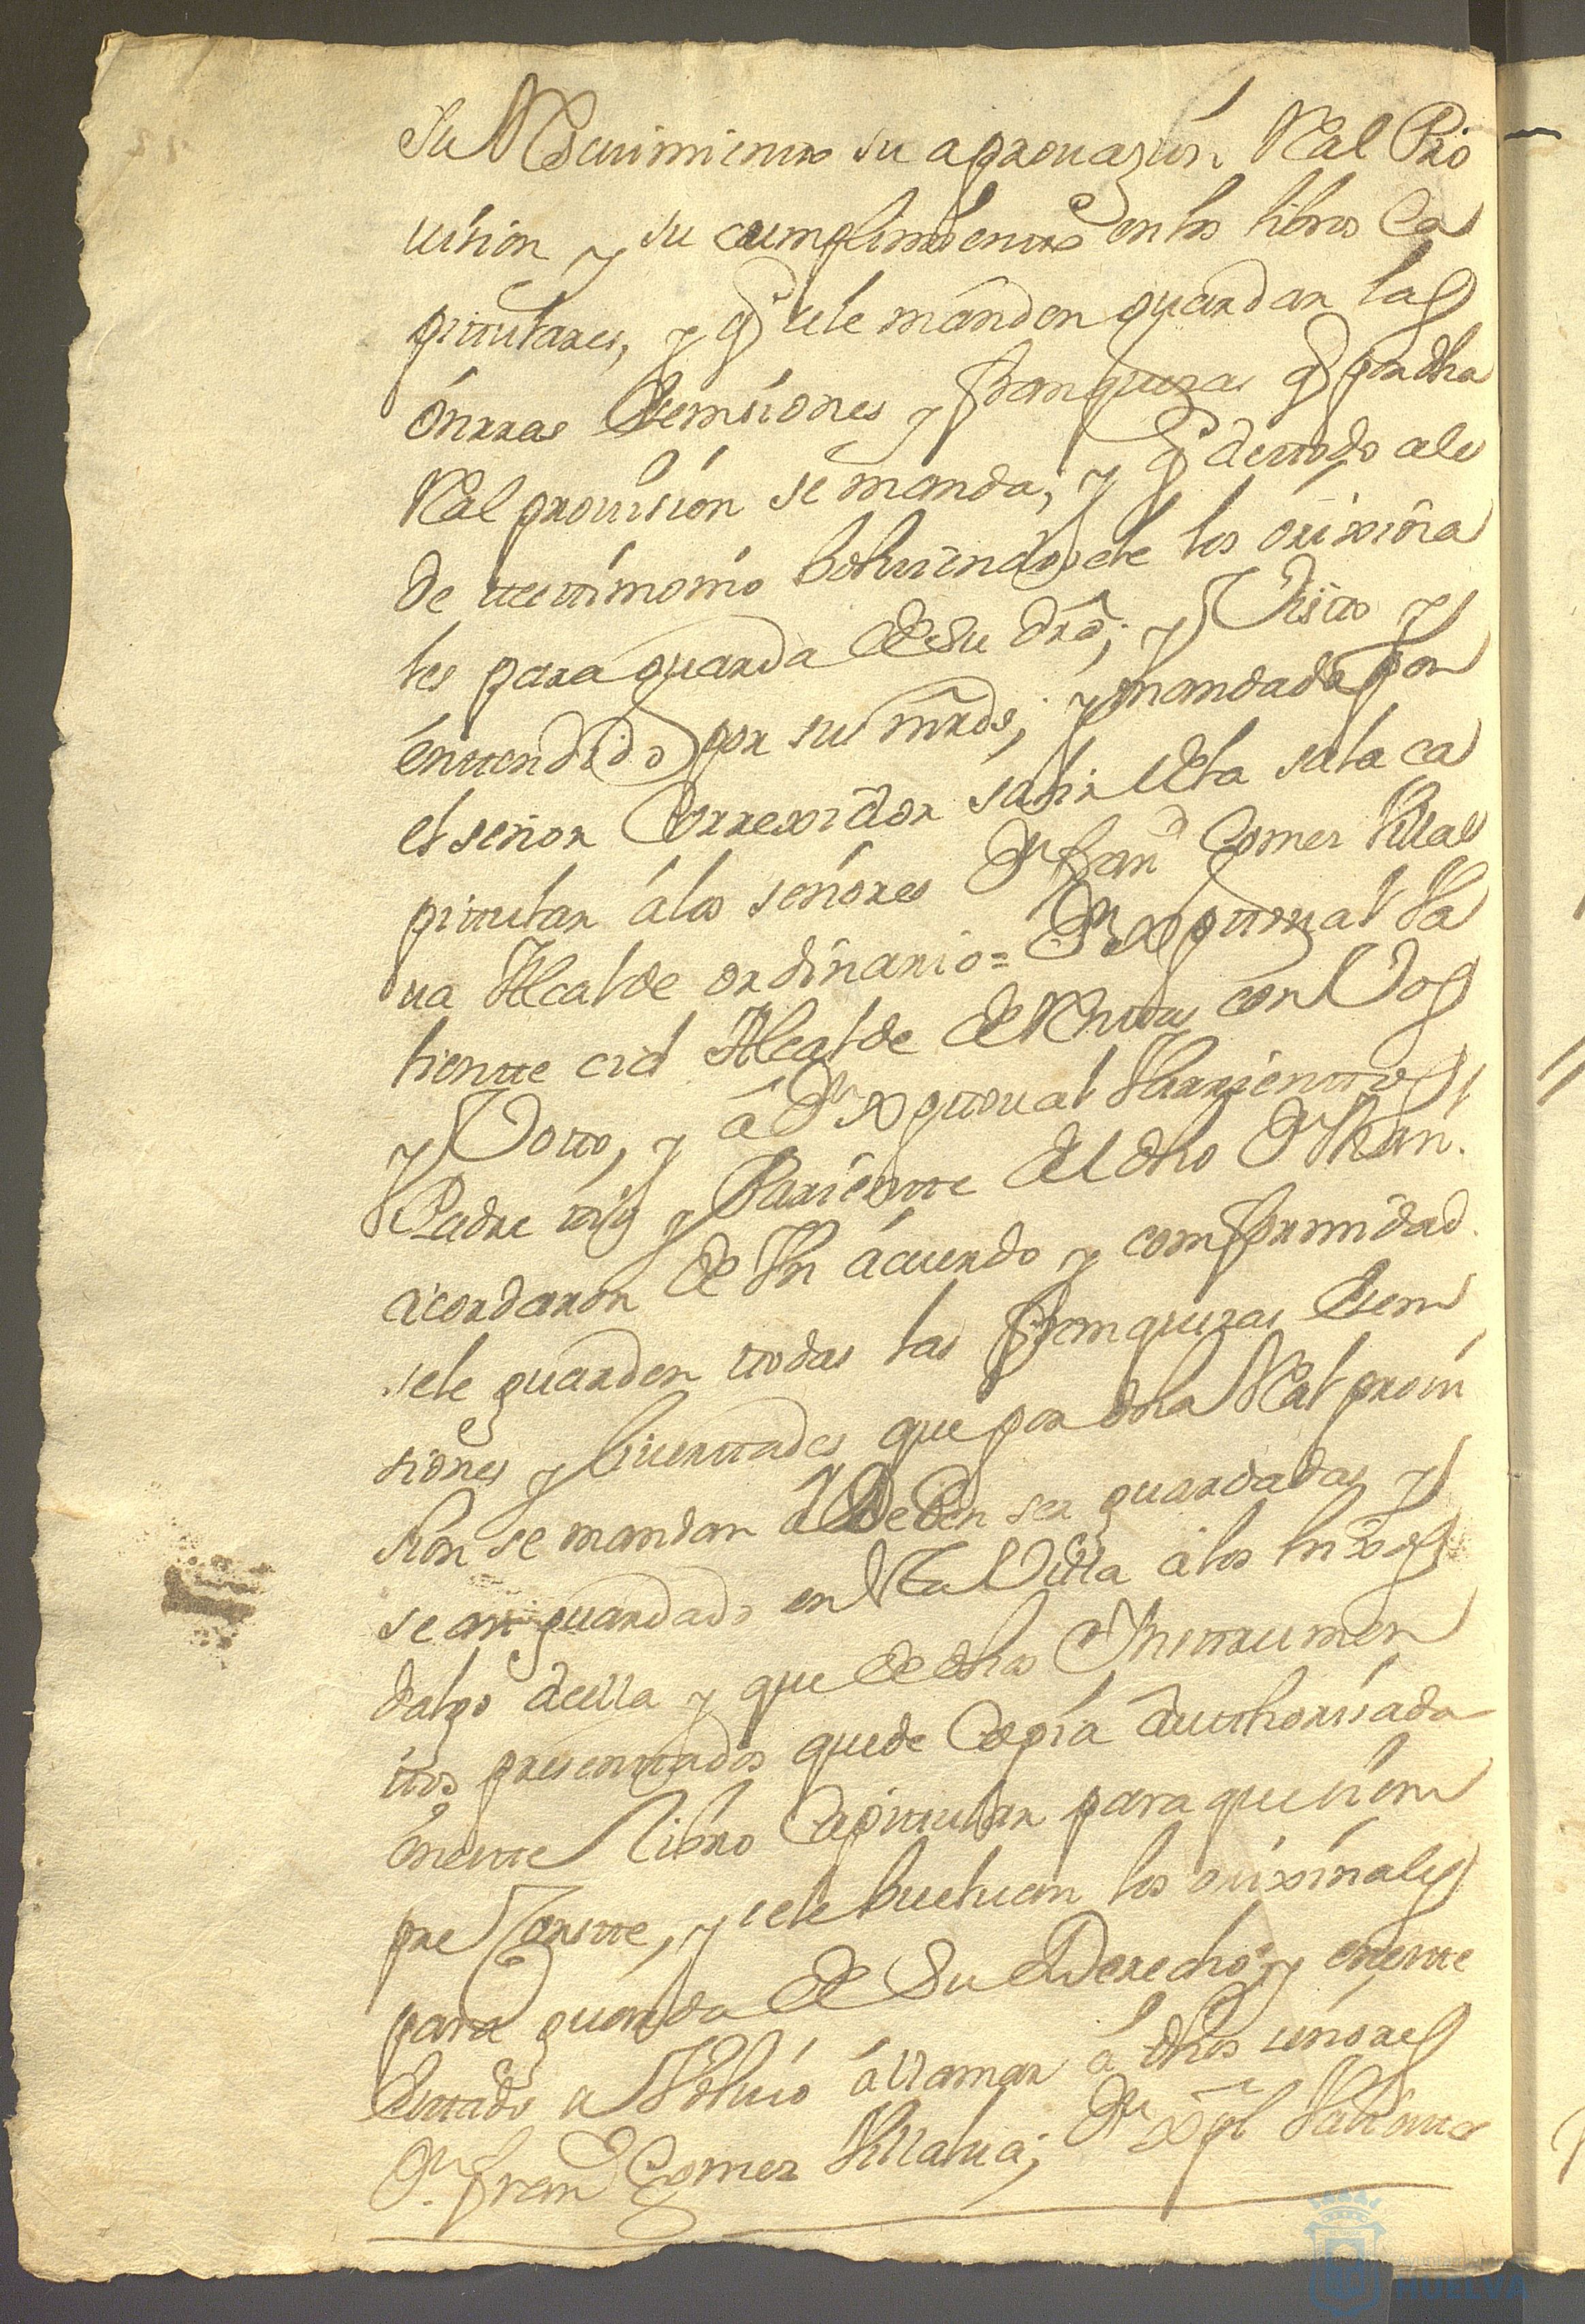 su Resuimiento su aprouazión, Real Pro
uision y su cumplimiento en los libros Ca
pitulares, y q̃ sele manden guardar las
ónrras Esempsiones y franquezas q̃ por dha
Real prouision se manda; y q̃ de ttodo ele
de ttestimonio boluiendosele los orixina
les para guarda de su dro; y Visto y
enttendido por sus mrds; y mandado por
el señor Correxidor salir dela sala ca
pitular á los señores Dn franco Gomez Villal
ua Alcalde ordinario = Dn Xptoual Va
liente cid Alcalde de Rentas con Voz
y Votto, y á Dn Xptoual Barrientos
Padre y Pariente del dho Dn Juan.
acordaron de Vn ácuerdo y comformidad
sele guarden ttodas las franquezas Esem
siones y liuerttades que por dha Real proui
sion se mandan Deben ser guardadas y
se an guardado en Esta Villa á los hixos
dalgo de ella y que de dhos Ynstrumen
ttos presenttados quede Copia autthorisada
en este Libro Capittular para que siem
pre Conste, y sele bueluan los orixinales
para guarda de Su Derecho; y en este
Esttado se Boluió államar á dhos señores
Dn franco Gomez Villalua; Dn Xpl Valiente
HUELVA